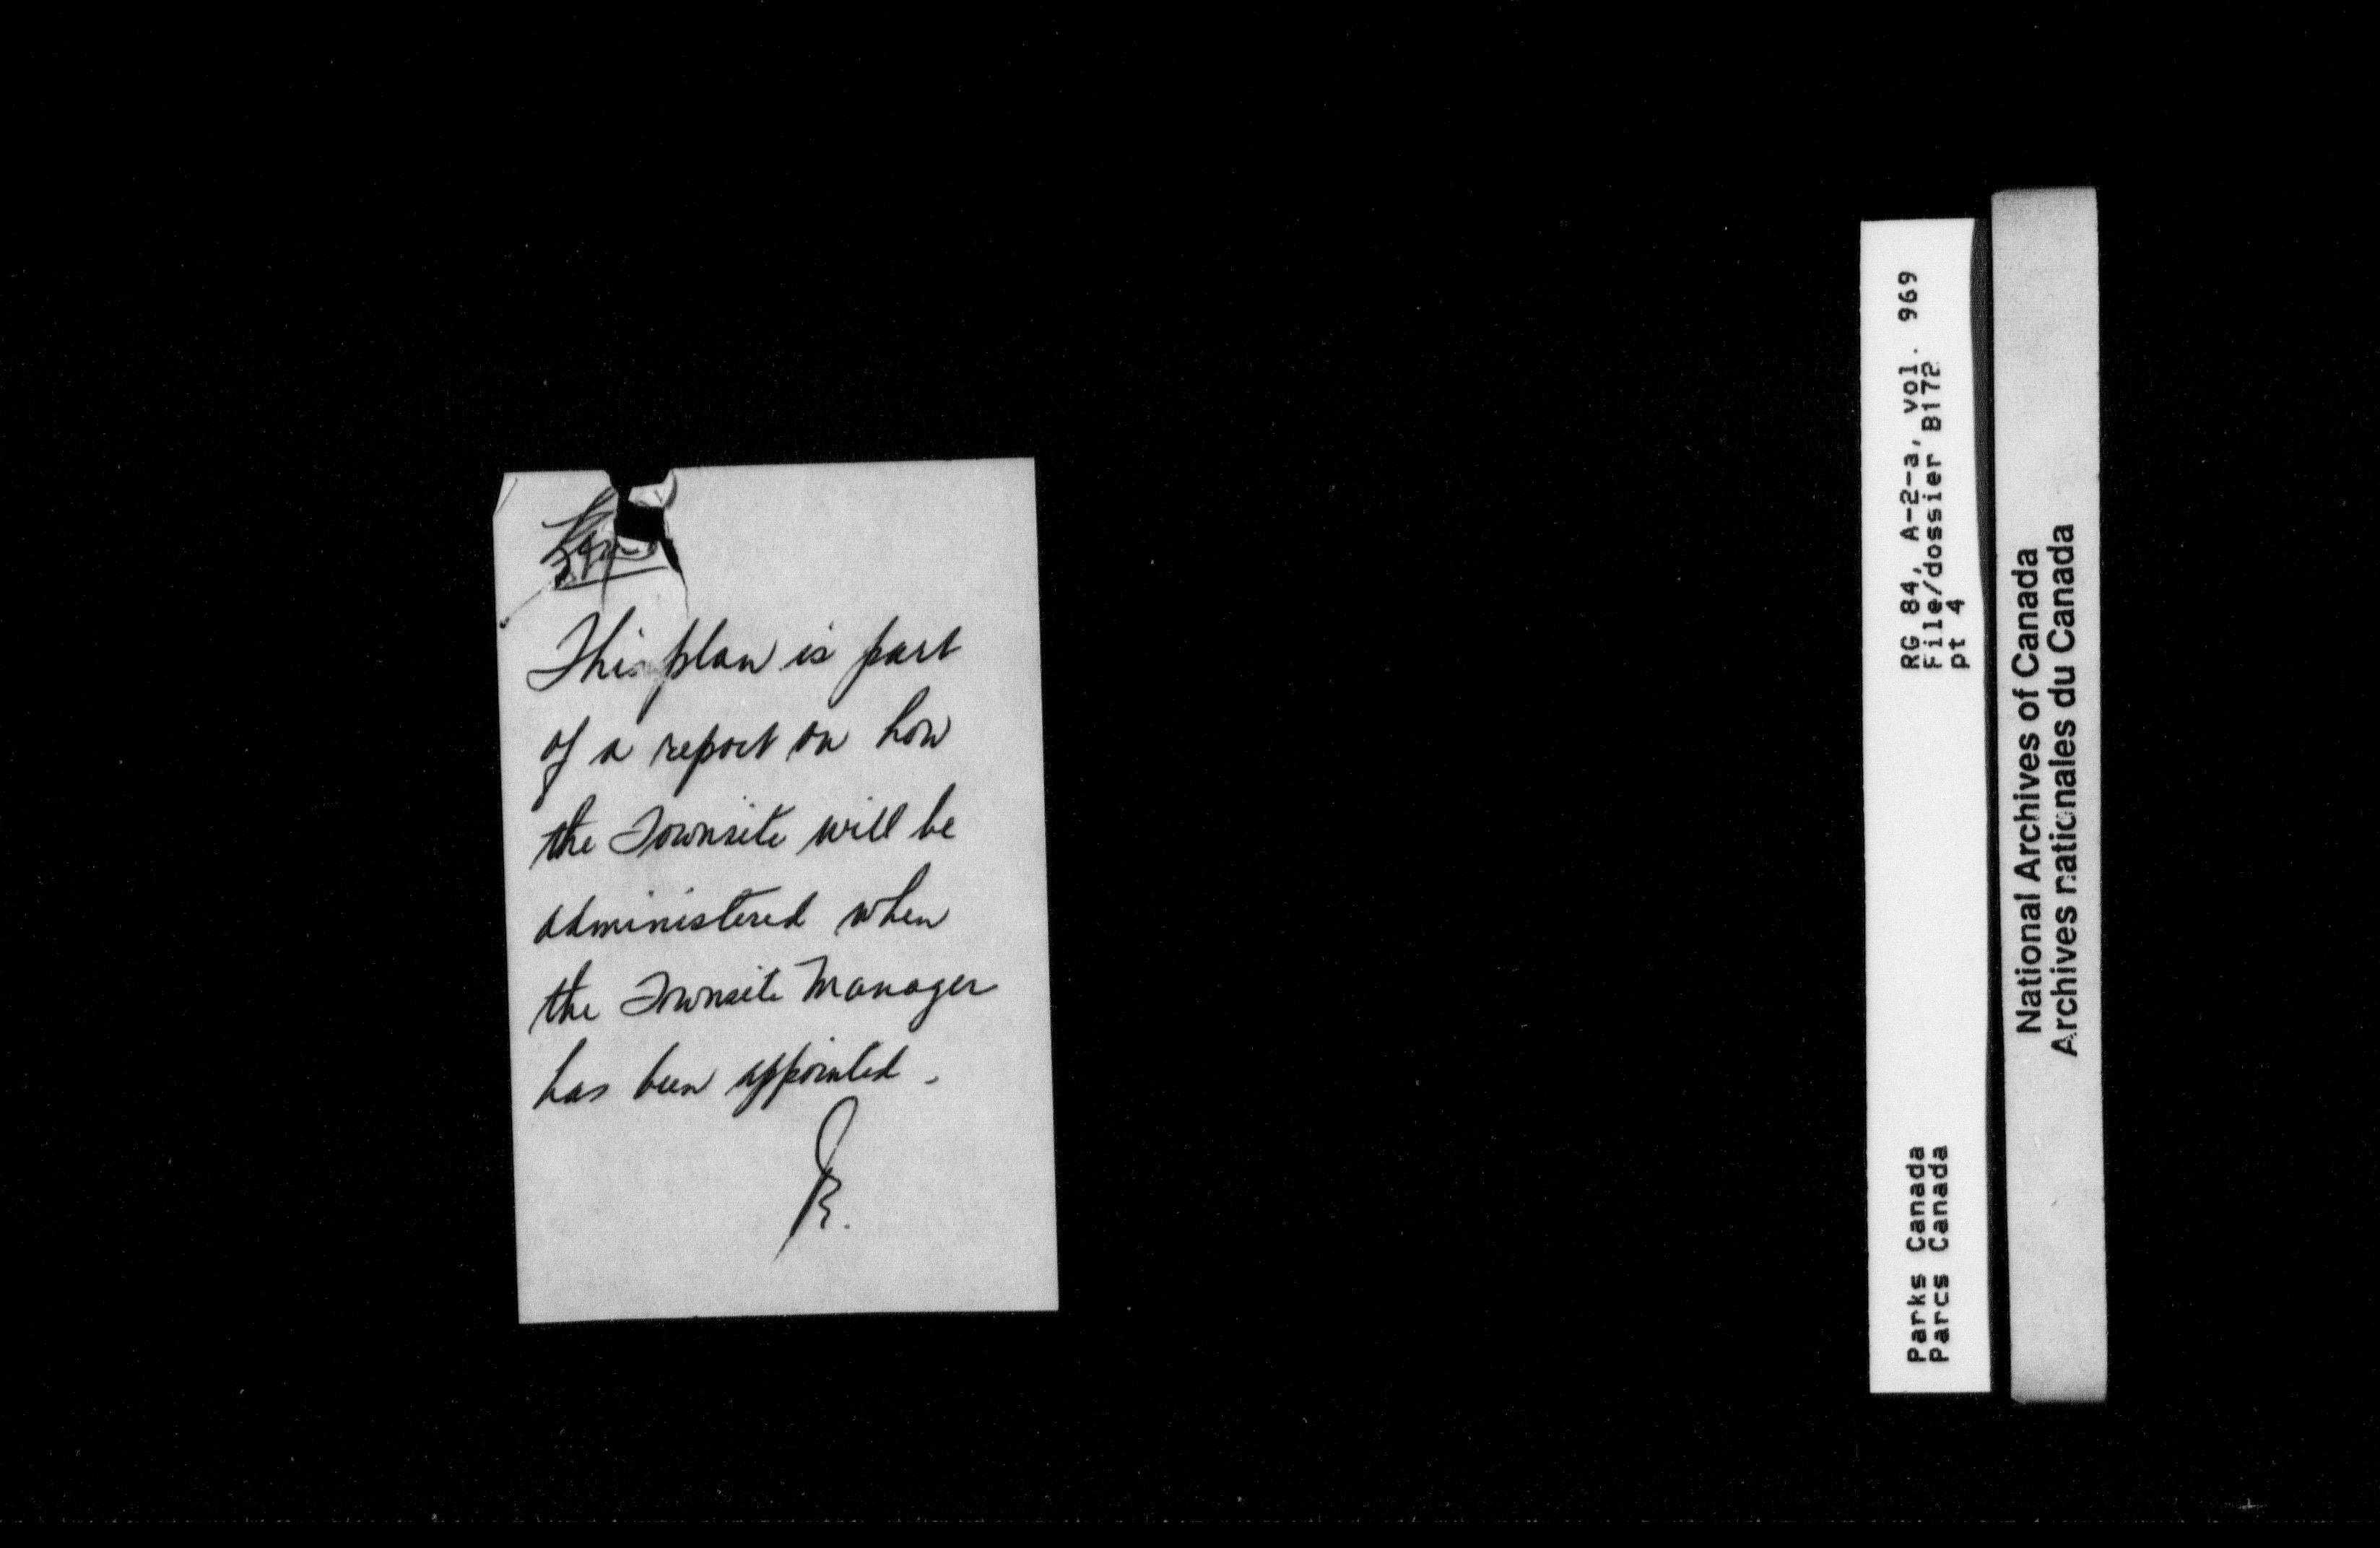 This plan is part
of a report on how
the Townsite will be
administered when
the Townsite Manager
has been appointed.
RG 84, A-2-a, vol. 969
File/dossier B172
pt 4
Parks Canada
Parcs Canada
National Archives of Canada
Archives nationales du Canada